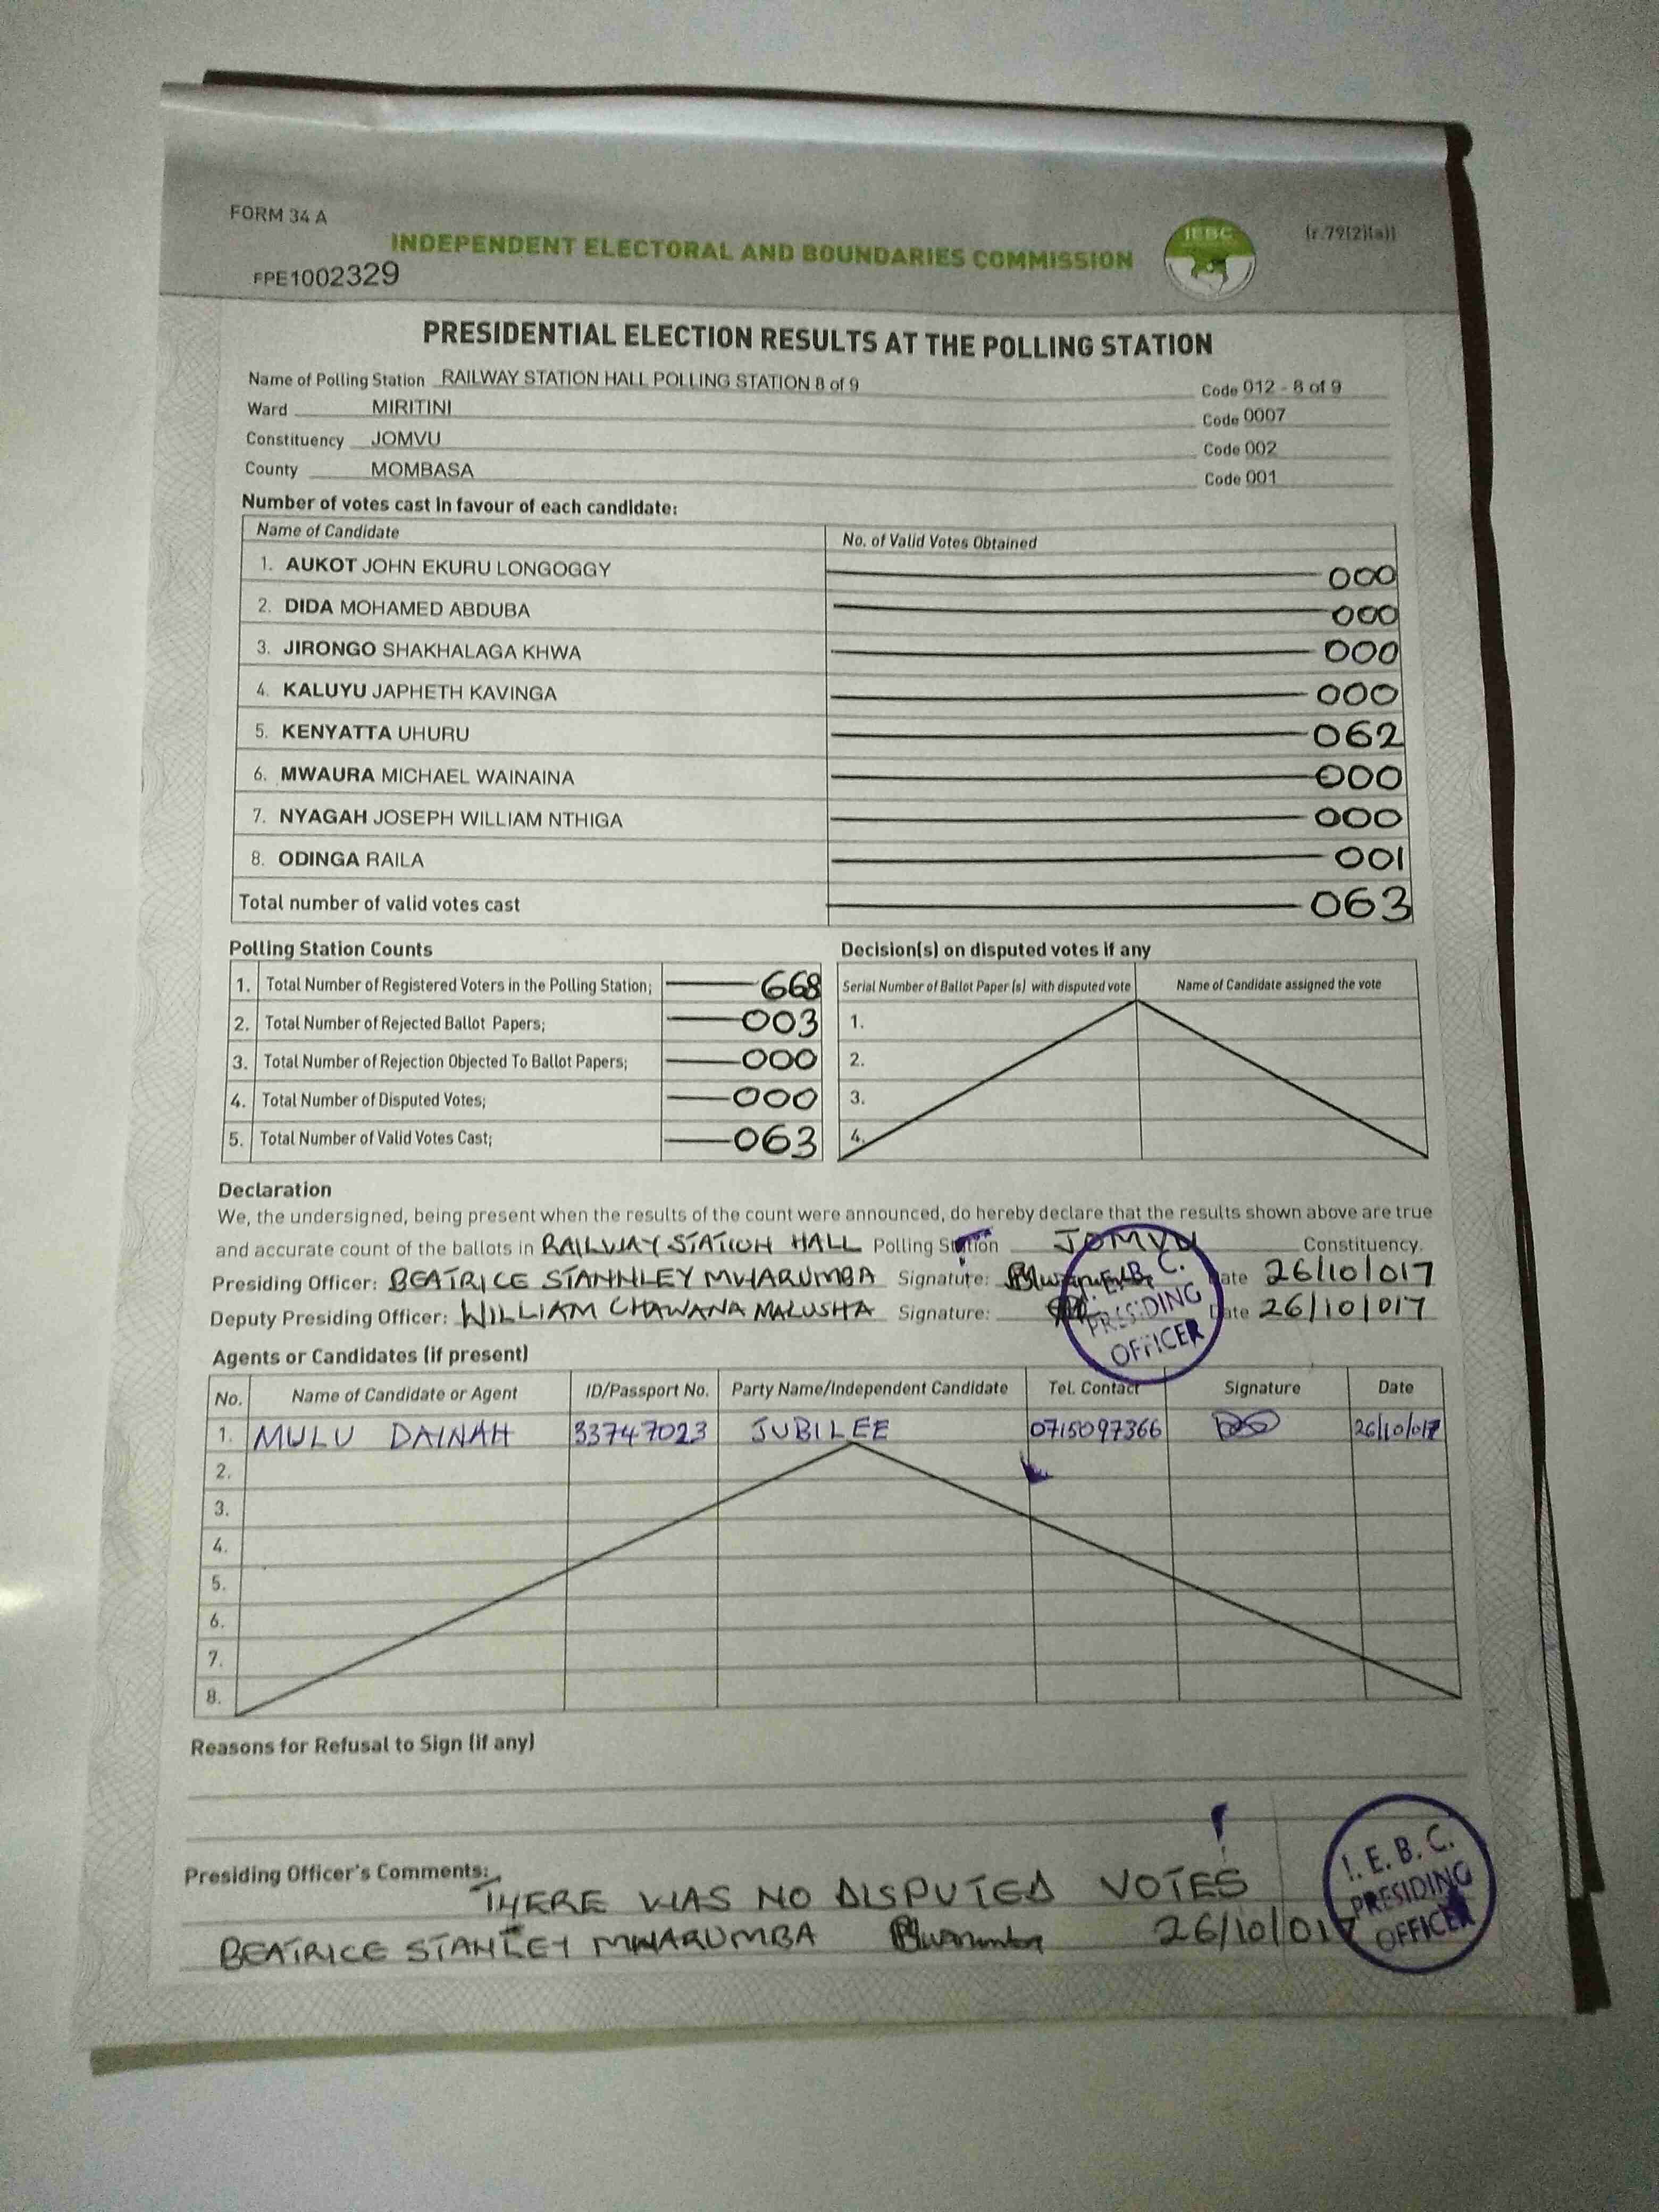 FORM 34 A
(r.79(2)(a))
INDEPENDENT ELECTORAL AND BOUNDARIES COMMISSION
IEBC
FPE1002329
PRESIDENTIAL ELECTION RESULTS AT THE POLLING STATION
Name of Polling Station RAILWAY STATION HALL POLLING STATION 8 of 9 Code 012 - 8 of 9
Ward MIRITINI Code 0007
Constituency JOMVU Code 002
County MOMBASA Code 001
Number of votes cast in favour of each candidate:
Name of Candidate No. of Valid Votes Obtained
1. AUKOT JOHN EKURU LONGOGGY 000
2. DIDA MOHAMED ABDUBA 000
3. JIRONGO SHAKHALAGA KHWA 000
4. KALUYU JAPHETH KAVINGA 000
5. KENYATTA UHURU 062
6. MWAURA MICHAEL WAINAINA 000
7. NYAGAH JOSEPH WILLIAM NTHIGA 000
8. ODINGA RAILA 001
Total number of valid votes cast 063
Polling Station Counts
1. Total Number of Registered Voters in the Polling Station; 668
2. Total Number of Rejected Ballot Papers; 003
3. Total Number of Rejection Objected To Ballot Papers; 000
4. Total Number of Disputed Votes; 000
5. Total Number of Valid Votes Cast; 063
Decision(s) on disputed votes if any
Serial Number of Ballot Paper (s) with disputed vote Name of Candidate assigned the vote
1.
2.
3.
4.
Declaration
We, the undersigned, being present when the results of the count were announced, do hereby declare that the results shown above are true
and accurate count of the ballots in RAILWAY STATION HALL Polling Station JOMVU Constituency.
Presiding Officer: BEATRICE STANNLEY MWARUMBA Signature: Date 26/10/017
Deputy Presiding Officer: WILLIAM CHAWANA MALUSHA Signature: Date 26/10/017
I. E. B. C.
PRESIDING
OFFICER
Agents or Candidates (if present)
No. Name of Candidate or Agent ID/Passport No. Party Name/Independent Candidate Tel. Contact Signature Date
1. MULU DAINAH 33747023 JUBILEE 0715097366 26/10/017
2.
3.
4.
5.
6.
7.
8.
Reasons for Refusal to Sign (if any)
Presiding Officer's Comments:
THERE WAS NO DISPUTED VOTES
BEATRICE STANLEY MWARUMBA 26/10/017
I. E. B. C.
PRESIDING
OFFICER